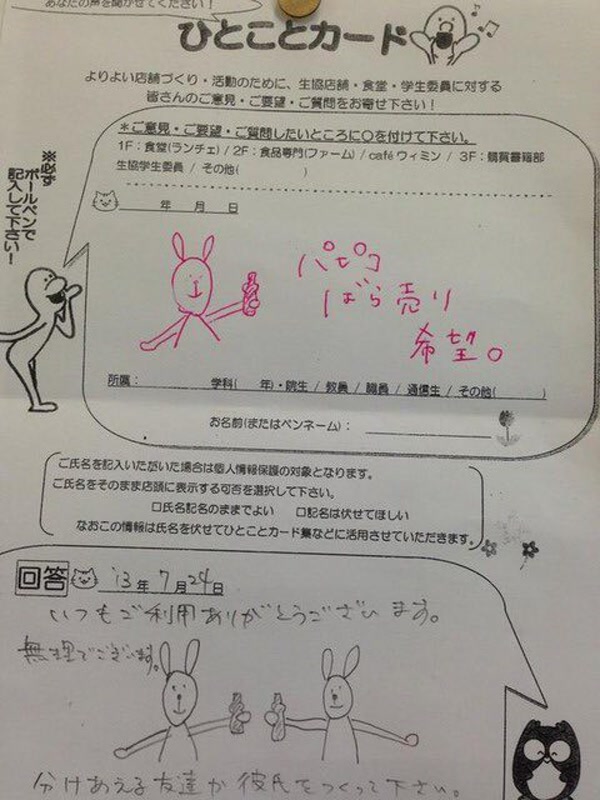 あなたの声を聞かせてください!
ひとことカード
よりよい店舗づくり・活動のために、生協店舗・食堂・学生委員に対する
皆さんのご意見・ご要望・ご質問をお寄せ下さい!
*ご意見・ご要望・ご質問したいところに〇を付けて下さい。
1F:食堂(ランチェ) / 2F:食品専門(ファーム) / café ウィミン / 3F:購買書籍部
生協学生委員 / その他( )
※必ず
ボールペンで
記入して下さい!
年 月 日
パピコ
ばら売り
希望。
所属: 学科( 年)・院生 / 教員 / 職員 / 通信生 / その他( )
お名前(またはペンネーム):
ご氏名を記入いただいた場合は個人情報保護の対象となります。
ご氏名をそのまま店頭に表示する可否を選択して下さい。
□氏名記名のままでよい □記名は伏せてほしい
なおこの情報は氏名を伏せてひとことカード集などに活用させていただきます。
回答 '13年7月24日
いつもご利用ありがとうございます。
無理でございます。
分けあえる友達か彼氏をつくって下さい。